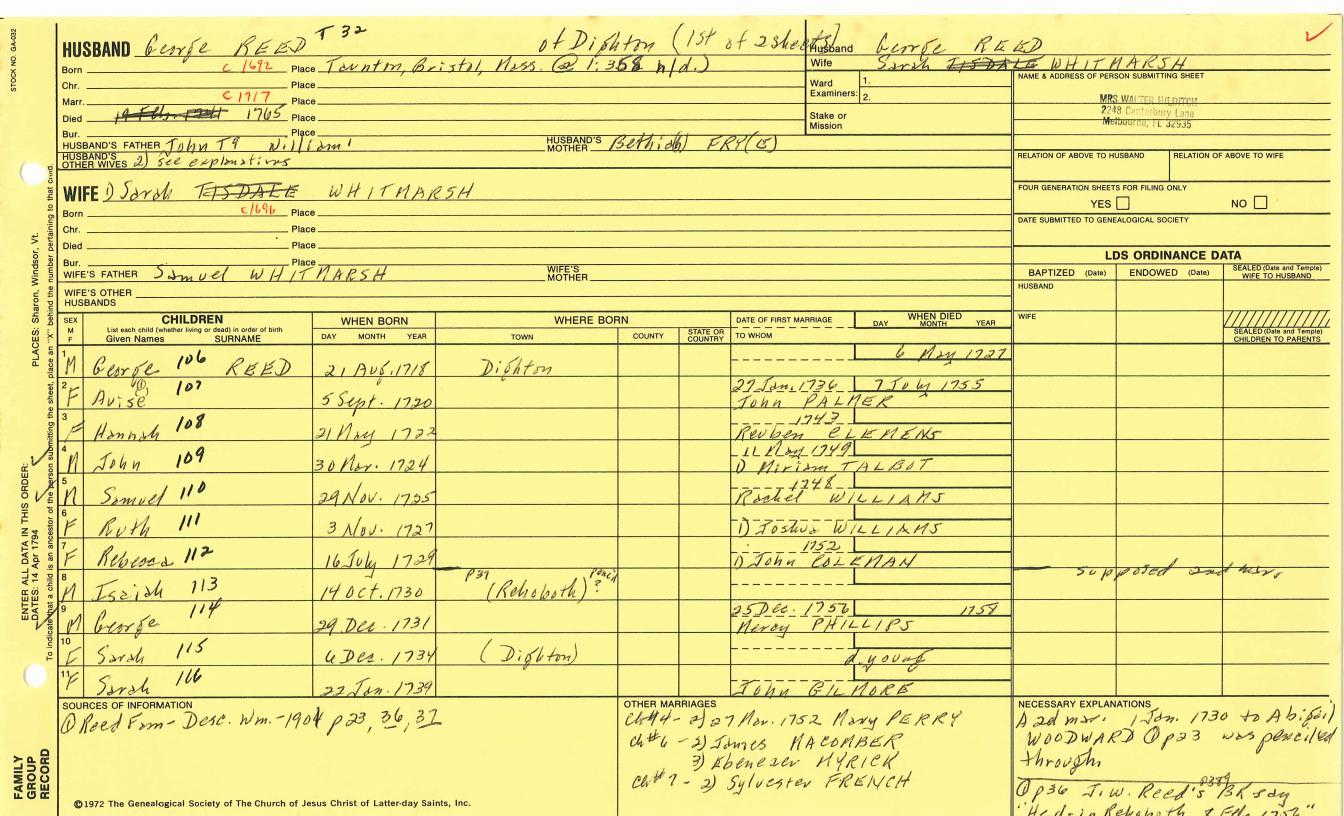 STOCK NO. GA-032
HUSBAND George REED T 32 of Dighton (1st of 2 sheets)
Born c 1692 Place Taunton, Bristol, Mass. (@ 1:358 n/d.)
Chr. Place
Marr. c 1717 Place
Died 1765 Place
Bur. Place
HUSBAND'S FATHER John T9 William' HUSBAND'S MOTHER Bethiah FRY(E)
HUSBAND'S OTHER WIVES 2) see explanations
Husband George REED
Wife Sarah TISDALE WHITMARSH
Ward Examiners: 1.
2.
Stake or Mission
NAME & ADDRESS OF PERSON SUBMITTING SHEET
MRS WALTER
2248 Canterbury Lane
Melbourne, FL 32935
RELATION OF ABOVE TO HUSBAND RELATION OF ABOVE TO WIFE
FOUR GENERATION SHEETS FOR FILING ONLY
YES NO
DATE SUBMITTED TO GENEALOGICAL SOCIETY
WIFE 1) Sarah TISDALE WHITMARSH
Born c 1696 Place
Chr. Place
Died Place
Bur. Place
WIFE'S FATHER Samuel WHITMARSH WIFE'S MOTHER
WIFE'S OTHER HUSBANDS
LDS ORDINANCE DATA
BAPTIZED (Date) ENDOWED (Date) SEALED (Date and Temple) WIFE TO HUSBAND
HUSBAND
WIFE
SEALED (Date and Temple) CHILDREN TO PARENTS
SEX M F CHILDREN WHEN BORN WHERE BORN DATE OF FIRST MARRIAGE WHEN DIED
List each child (whether living or dead) in order of birth
Given Names SURNAME DAY MONTH YEAR TOWN COUNTY STATE OR COUNTRY TO WHOM DAY MONTH YEAR
1 M George 106 REED 21 Aug. 1718 Dighton 6 May 1727
2 F Avise 107 5 Sept. 1720 27 Jan. 1736 7 July 1755
John PALMER
3 F Hannah 108 21 May 1722 1743
Reuben CLEMENS
4 M John 109 30 Mar. 1724 11 May 1749
1) Miriam TALBOT
5 M Samuel 110 29 Nov. 1725 1748
Rachel WILLIAMS
6 F Ruth 111 3 Nov. 1727 1) Joshua WILLIAMS
7 F Rebecca 112 16 July 1729 1752
1) John COLEMAN
8 M Isaiah 113 14 Oct. 1730 p37 (Rehoboth) pencil ? supposed and mar.
9 M George 114 29 Dec. 1731 25 Dec. 1756 1758
Mercy PHILLIPS
10 F Sarah 115 6 Dec. 1734 (Dighton) d. young
11 F Sarah 116 22 Jan. 1739 John GILMORE
SOURCES OF INFORMATION
① Reed Fam- Desc. Wm.-1901 p23, 36, 37
OTHER MARRIAGES
Ch#4 - 2) 27 Mar. 1752 Mary PERRY
Ch#6 - 2) James MACOMBER
3) Ebenezer MYRICK
Ch#7 - 2) Sylvester FRENCH
NECESSARY EXPLANATIONS
A 2d mar. 1 Jan. 1730 to Abigail
WOODWARD ① p23 was penciled
through
① p36 J.W. Reed's BK say p389
"He d. in Rehoboth
PLACES: Sharon, Windsor, Vt.
ENTER ALL DATA IN THIS ORDER:
DATES: 14 Apr 1794
To indicate that a child is an ancestor of the person submitting the sheet, place an "X" behind the number pertaining to that child.
FAMILY GROUP RECORD
©1972 The Genealogical Society of The Church of Jesus Christ of Latter-day Saints, Inc.